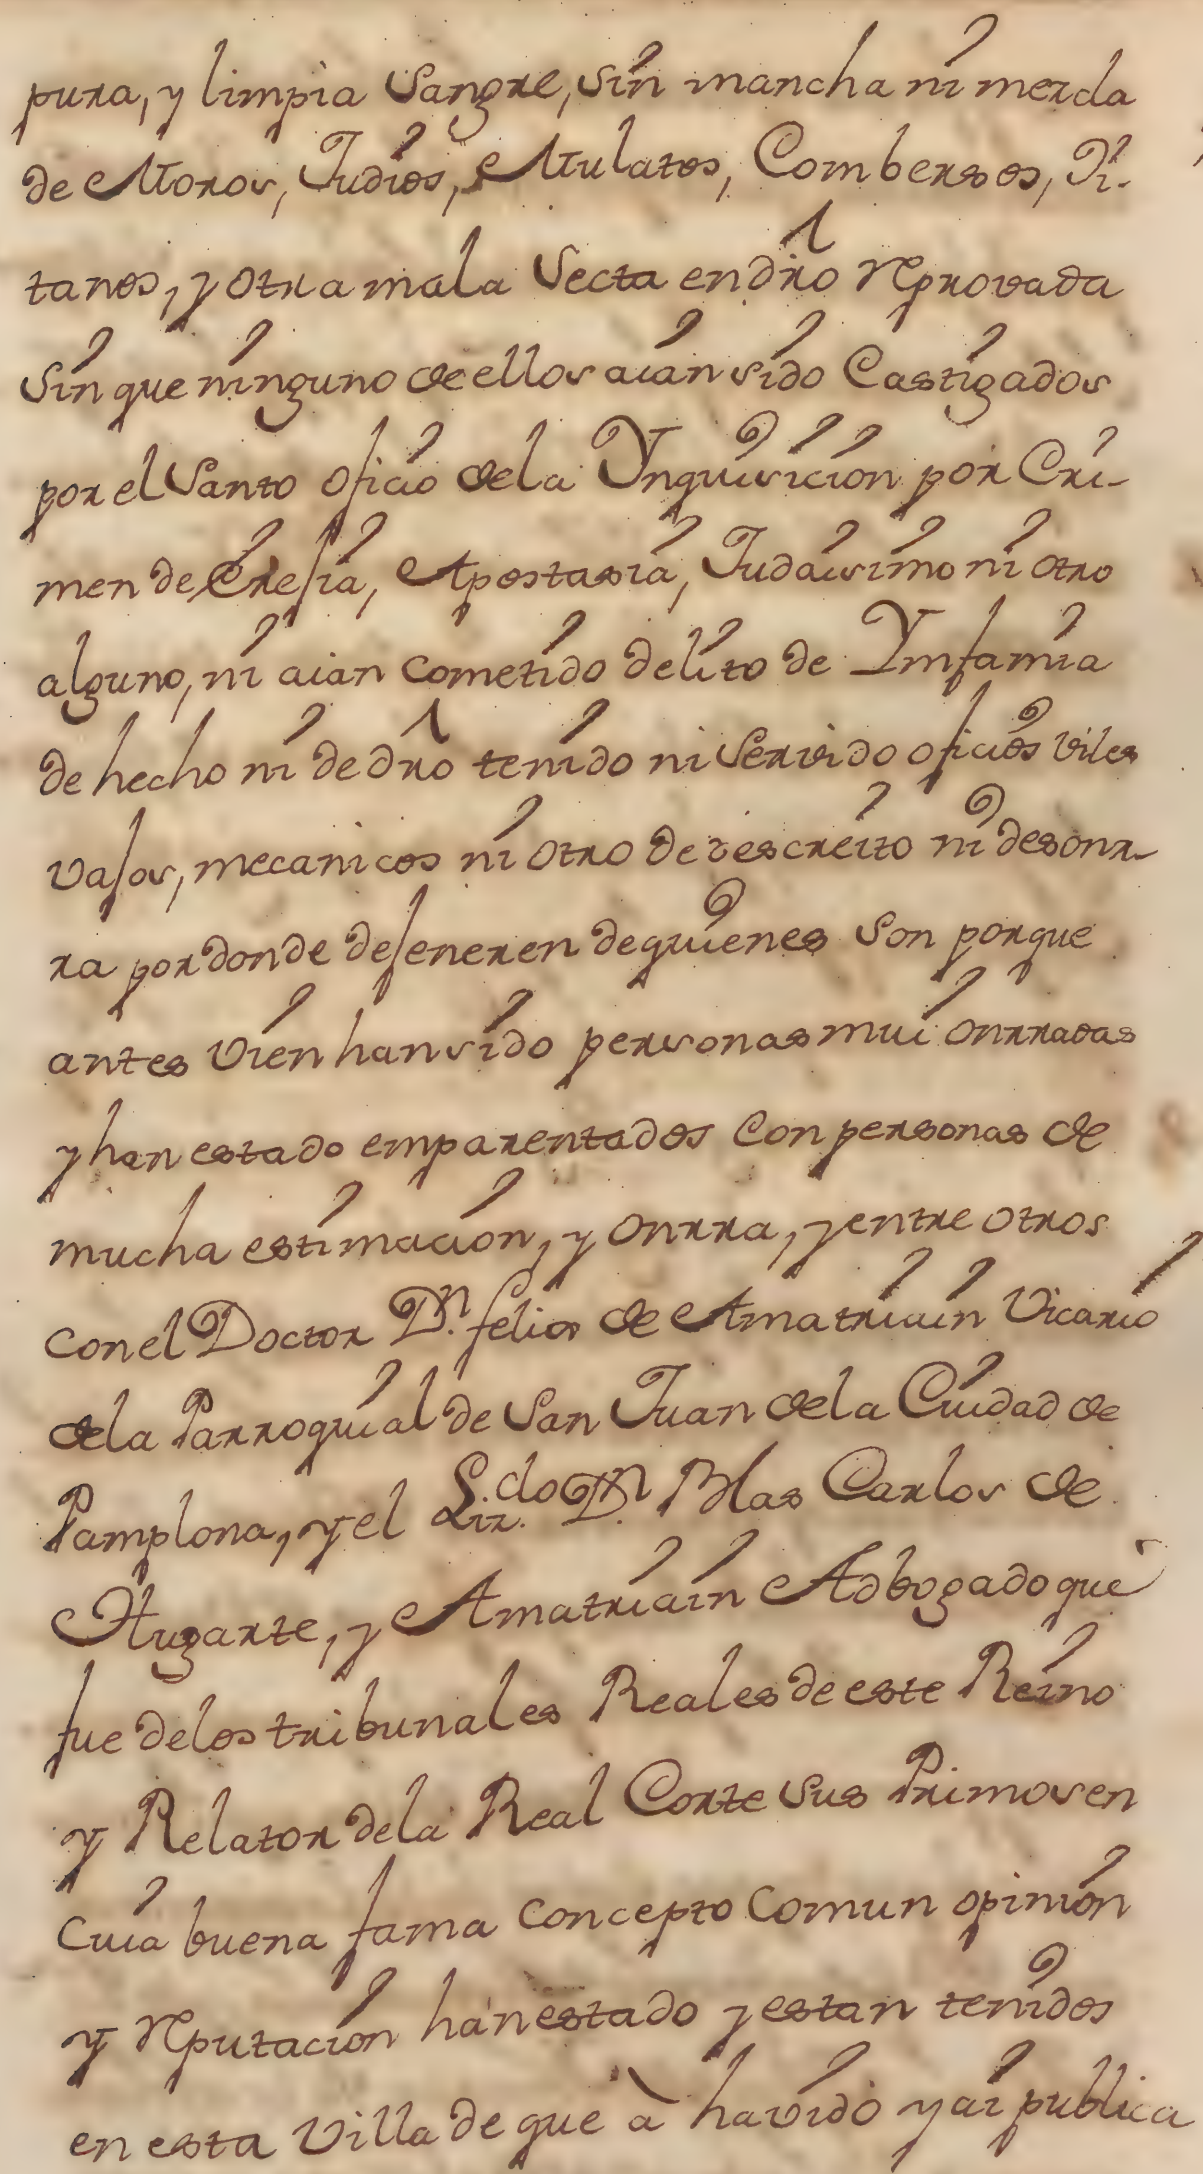 pura, y limpia Sangre, sin mancha ni mezcla
de Moros, Judios, Mulatos, Combersos, Ji-
tanos, y otra mala Secta en dr̃o reprovada
Sin que ninguno de ellos aian sido Castigados
por el Santo oficio de la Ynquisicion por Cri-
men de Erejia, Apostasia, Judaismo ni otro
alguno, ni aian cometido delito de Ymfamia
de hecho ni de dr̃o tenido ni Servido oficios viles
vajos, mecanicos ni otro de descreito ni desonr-
ra por donde dejeneren de quienes son porque
antes vien han sido personas mui onrradas
y han estado emparentados con personas de
mucha estimacion, y onrra, y entre otros
con el Doctor Dn. felix de Amatriain Vicario
de la Parroquial de San Juan de la Ciudad de
Pamplona, y el Liz.do Dn. Blas Carlos de
Hugarte, y Amatriain Adbogado que
fue de los tribunales Reales de este Reino
y Relator de la Real Corte sus Primos en
cuia buena fama concepto comun opinion
y reputacion han estado y estan tenidos
en esta Villa de que à havido y ai publica